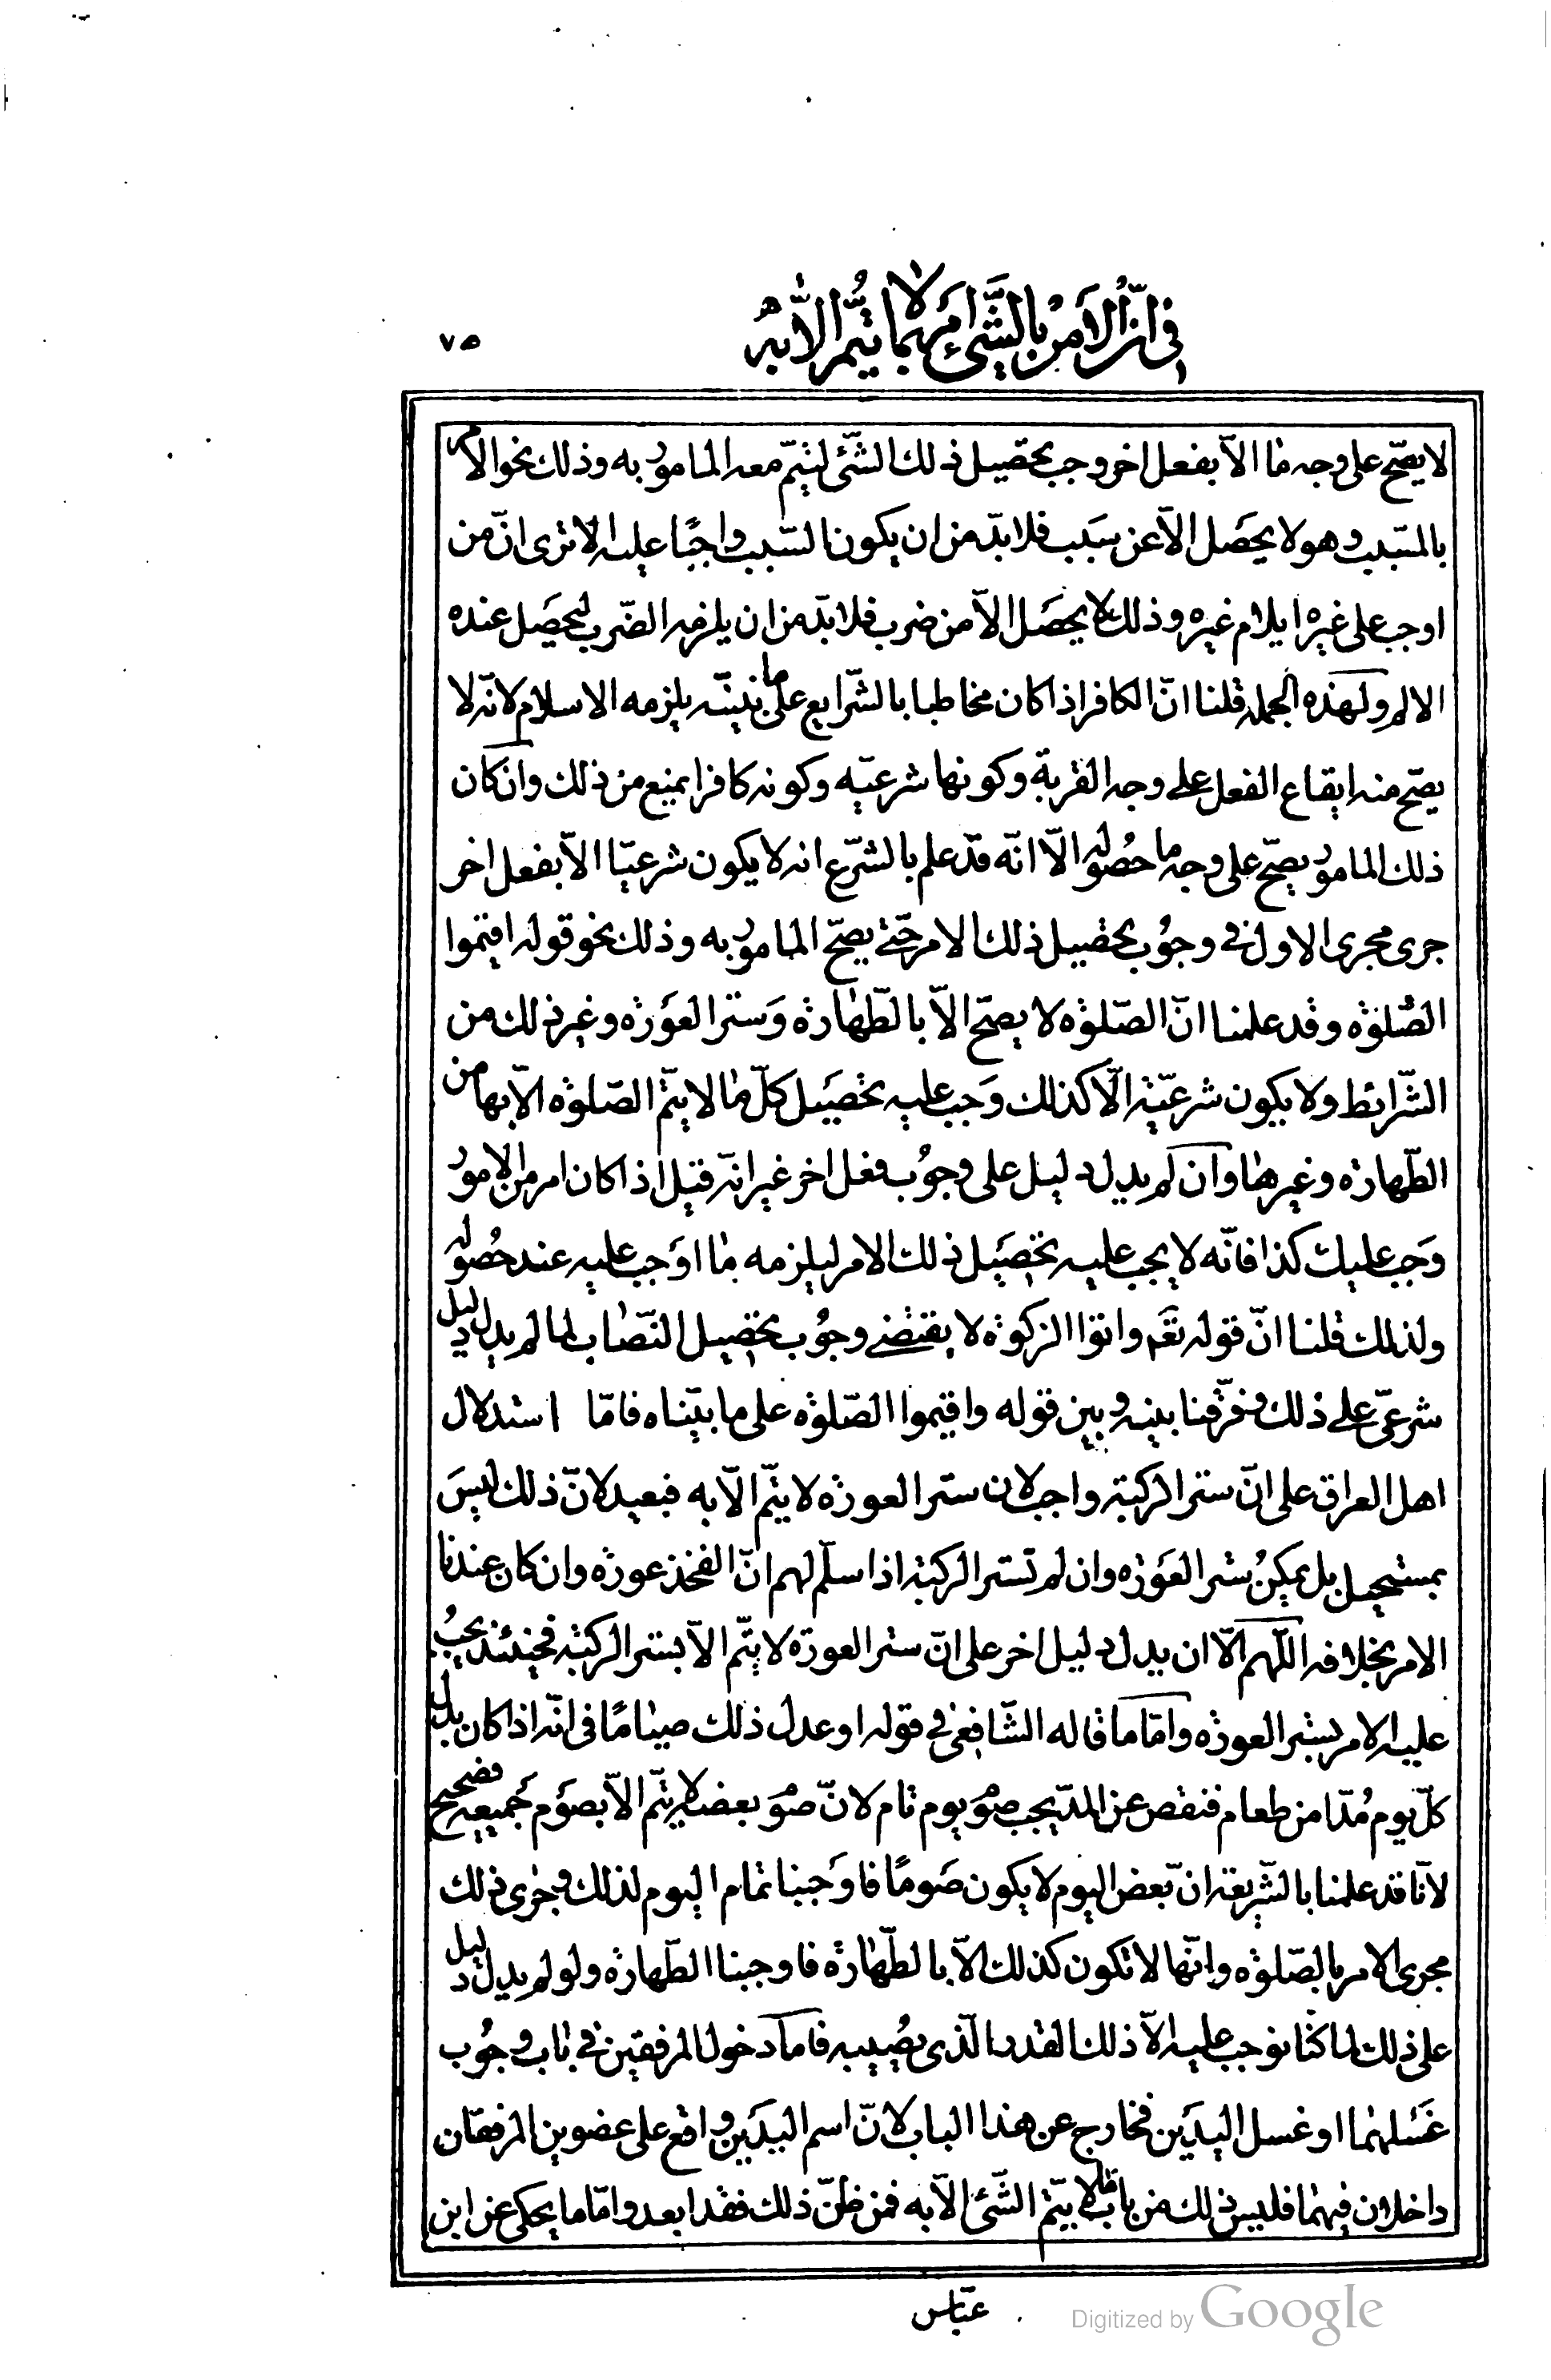 في انّ الأمر بالشّئ امر بما لا يتمّ الّا به
٧٥
لا يصحّ على وجه ما الّا بفعل اخر وجب تحصيل ذلك الشّئ ليتمّ معه المامور به وذلك نحو الامر
بالمسّبب وهو لا يحصل الّا عن سبب فلا بدّ من ان يكون السّبب واجبًا عليه الا ترى انّ من
اوجب على غيره ايلام غيره وذلك لا يحصل الّا من ضرب فلا بدّ من ان يلزمه الضّرب ليحصل عنده
الالم ولهذه الجملة قلنا انّ الكافر اذا كان مخاطبا بالشّرايع على ما نبيّنه يلزمه الاسلام لانّه لا
يصحّ منه ايقاع الفعل على وجه القربة وكونها شرعيّه وكونه كافرا يمنع من ذلك وان كان
ذلك المامور يصحّ على وجه ما حصوله الّا انّه قد علم بالشّرع انه لا يكون شرعيّا الّا بفعل اخر
جرى مجرى الاول في وجوب تحصيل ذلك الامر حتّى يصحّ المامور به وذلك نحو قوله اقيموا
الصّلوة وقد علمنا انّ الصّلوة لا يصحّ الّا بالطّهارة وستر العورة وغير ذلك من
الشّرائط ولا يكون شرعيّة الّا كذلك وجب عليه تحصيل كلّ ما لا يتمّ الصّلوة الّا بها من
الطّهارة وغيرها وان لم يدل دليل على وجوب فعل اخر غير انّه قيل اذا كان امر من الامور
وجب عليك كذا فانّه لا يجب عليه تحصيل ذلك الامر ليلزمه ما اوجب عليه عند حصوله
ولذلك قلنا انّ قوله تعم واتوا الزكوة لا يقتضي وجوب تحصيل النّصاب لما لم يدل دليل
شرعيّ على ذلك وفرّقنا بينه وبين قوله واقيموا الصّلوة على ما بيّناه فامّا استدلال
اهل العراق على انّ ستر الركبة واجب لان ستر العورة لا يتمّ الّا به فبعيد لانّ ذلك ليس
بمستحيل بل يمكن ستر العورة وان لم تستر الركبة اذا سلّم لهم انّ الفخذ عورة وان كان عندنا
الامر بخلافه اللّهم الّا ان يدل دليل اخر على انّ ستر العورة لا يتّم الّا بستر الركبة فحينئذ يجب
عليه الامر بستر العورة وامّا ما قاله الشّافعي في قوله او عدل ذلك صيامًا في انّه اذا كان بدل
كلّ يوم مُدّا من طعام فنقص عن المدّ يجب صوم يوم تام لانّ صوم بعضه لا يتّم الّا بصوم جميعه فصحيح
لانّا قد علمنا بالشّريعة انّ بعض اليوم لا يكون صومًا فاوجبنا تمام اليوم لذلك وجرى ذلك
مجرى الامر بالصّلوة وانّها لا تكون كذلك الّا بالطّهارة فاوجبنا الطّهارة ولو لم يدل دليل
على ذلك لما كنّا نوجب عليه الّا ذلك القدر الّذي يصيبه فامّا دخول المرفقين في باب وجوب
غسلهما او غسل اليدين فخارج عن هذا الباب لانّ اسم اليدين واقع على عضوين المرفقان
داخلان فيهما فليس ذلك من باب ما لا يتّم الشّئ الّا به فمن ظنّ ذلك فقد ابعد وامّا ما يحكى عن ابن
عبّاس
Digitized by Google